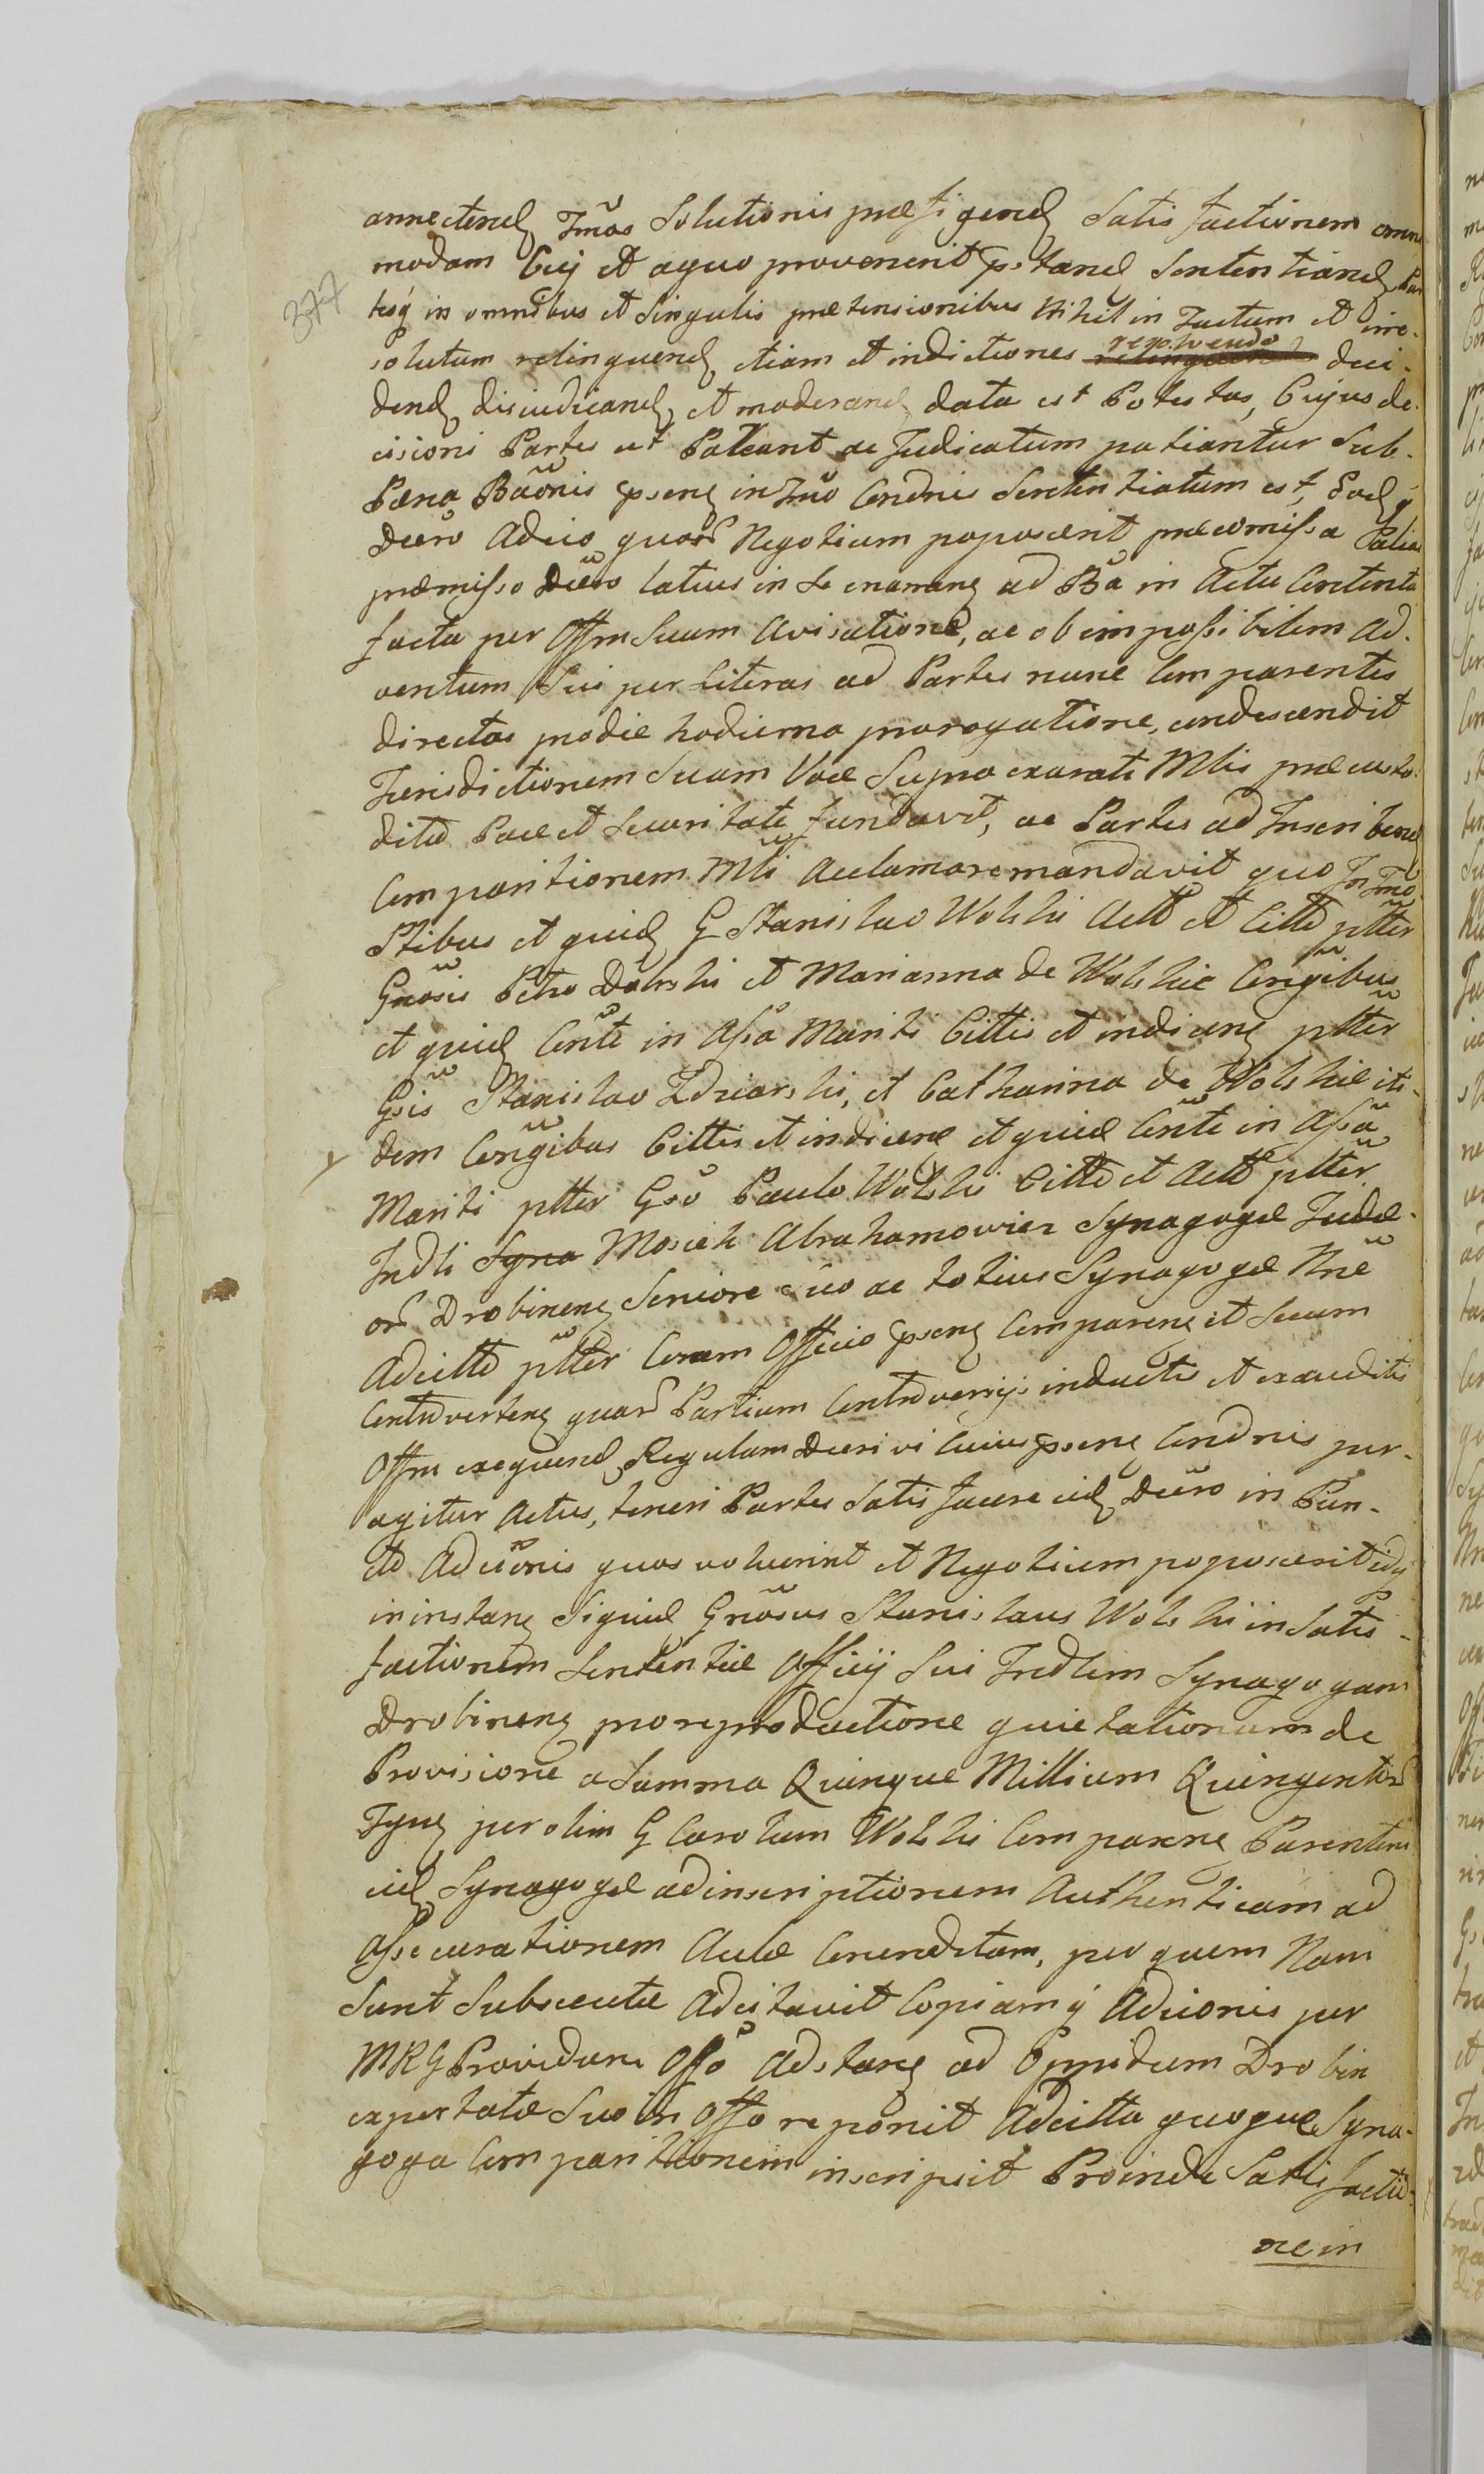 annectend Tmos Solutionis præfigend Satis factionem omni
modam Cuj et aquo provenerit pstand Sententiand Par
tesq in omnibus et Singulis prætensionibus Nihil in Factum et irre-
solutum relinquend, etiam et indictiones resolvendo deci-
dend disiudicand, et moderand data est Potestas, Cujus de-
cisioni Partes ut Pareant ac Judicatum patiantur Sub-
Pæna Bãonis pseng in Tmo Condnis Sententiatum est, Eod q
Decro Adcio quod Negotium poposcerit præcomissa
præmisso Decro latius in Se enarrang ad Ba in Actu Contenta
facta per Offm Suum Avisatione, ac ob impossibilem Ad-
ventum Sui per Literas ad Partes nunc Comparentes
directas prodie hodierna prorogatione, condescendit
Jurisdictionem Suam Voce Supra exarati Mlis præcusto-
dita Pace et Securitate fundavit, ac Partes ad Inscribend
Comparitionem Mli Acclamare mandavit quo In Tmo
Ptibus et quid G Stanislao Wolski Actt et Citto ptter
Gnosis Petro Dolrski et Marianna de Wolskie Congibus
et quid Conte in Assa Mariti Cittis et indicang ptter
Gsis Stanislao Zdziarski, et Catharina de Wolskie iti-
dem Congibus Cittis et indicand et quid Conte in Assa
Mariti ptter Gso Paulo Wolski Citto et Actt ptter
Indli Syna Mosiek Abrahamowicz Synagogæ Judæ-
or Drobineng Seniore suo ac totius Synagogæ Nne
Adcitto ptter Coram Officio pseng Compareng et Secum
Controverteng quar Partium Controversijs inductis et exauditis
Offm exequend Regulam Decri vi Cuius pseng Condnis per-
agitur Actus, teneri Partes Satis facere eid Decro in Pun-
cto Adcionis quos voluerint et Negotium poposcerit idq
in instang Siquid Gnosus Stanislaus Wolski in Satis-
factionem Sententiæ Officij Sui Indlem Synagogam
Drobineng pro reproductione quietationum de
Provisione a Summa Quinque Millium Quingentor
Tynf per olim G Carolum Wolski Compareng Parentem
eid Synagogæ ad inscriptionem Authenticam ad
Assecurationem Aulæ Concreditam, per quem Nam
Sunt Subsecutæ Adcitavit Copiamq Adcionis per
MRG Providum Offo Adstang ad Oppidum Drobin
exportatæ Suo in Offo reponit Adcitta quoque Syna-
goga Comparitionem inscripsit Proinde Satisfactio-
ne in
377